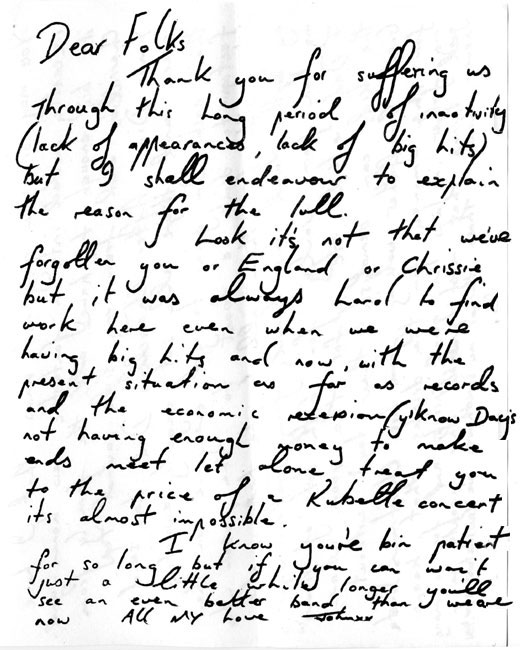 Dear Folks
Thank you for suffering us
through this long period of inactivity
(lack of appearances, lack of big hits)
but I shall endeavour to explain
the reason for the lull.
Look it's not that we've
forgotten you or England or Chrissie
but it was always hard to find
work here even when we were
having big hits and now, with the
present situation as far as records
and the economic recession (y'know Dad's
not having enough money to make
ends meet let alone treat you
to the price of a Rubette concert
its almost impossible.
I know you've bin patient
for so long but if you can wait
just a little while longer you'll
see an even better band than we are
now All My Love Johnxx